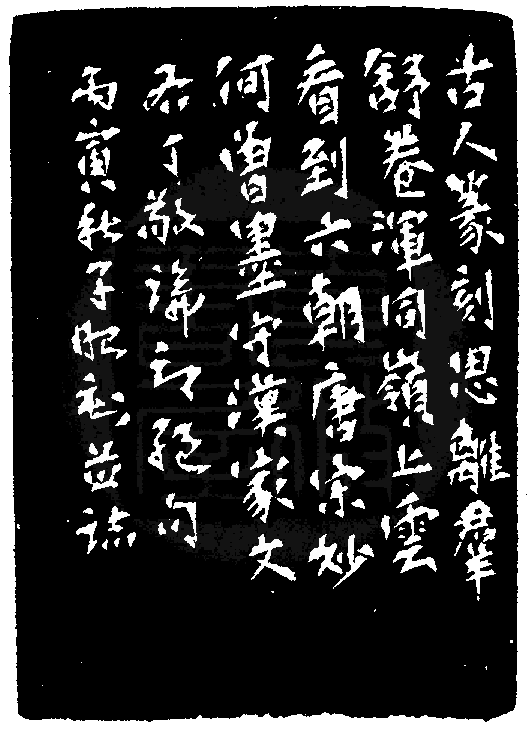 古人篆刻思離羣
舒卷渾同嶺上雲
看到六朝唐宋妙
何曾墨守漢家文
右丁敬論印絕句
丙寅秋子昭並誌